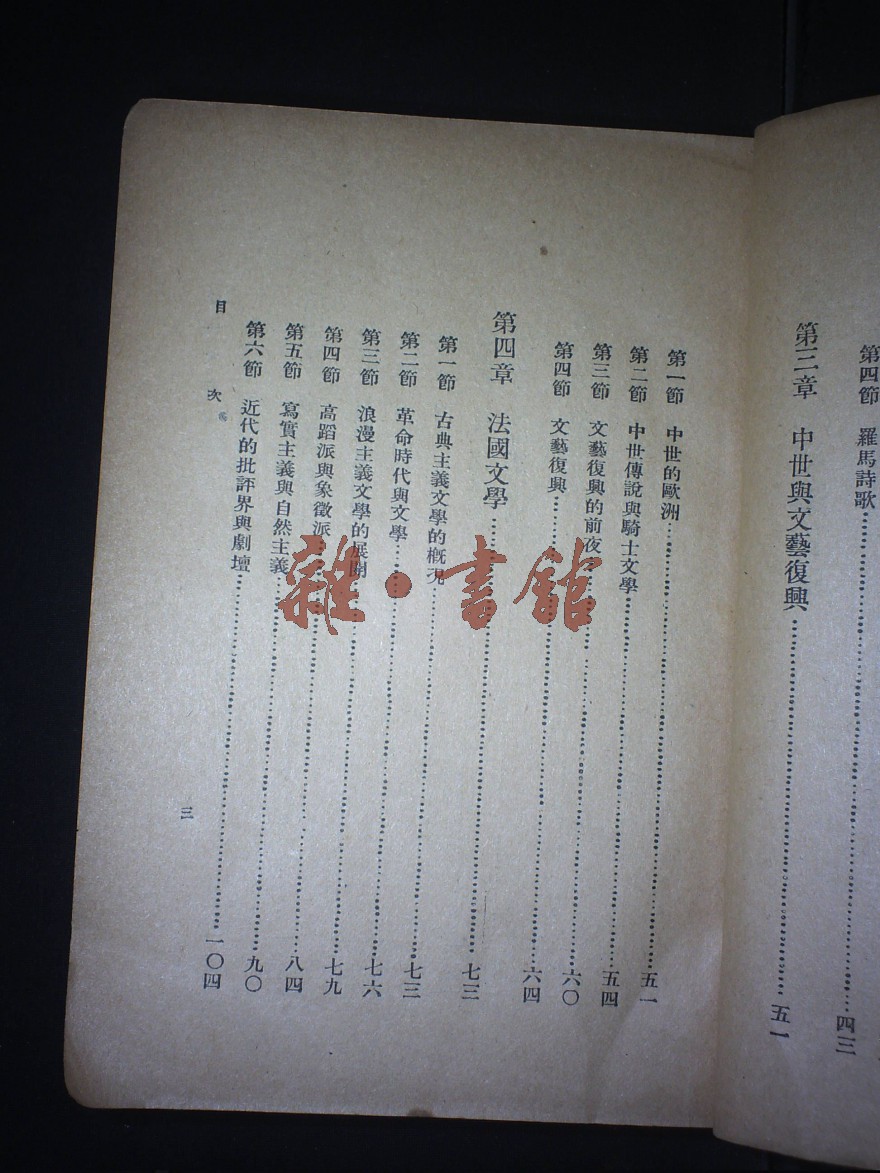 第四節 羅馬詩歌……四三
第三章 中世與文藝復興……五一
第一節 中世的歐洲……五一
第二節 中世傳說與騎士文學……五四
第三節 文藝復興的前夜……六〇
第四節 文藝復興……六四
第四章 法國文學……七三
第一節 古典主義文學的概況……七三
第二節 革命時代與文學……七六
第三節 浪漫主義文學的展開……七九
第四節 高蹈派與象徵派……八四
第五節 寫實主義與自然主義……九〇
第六節 近代的批評界與劇壇……一〇四
目次
三
雜·書館